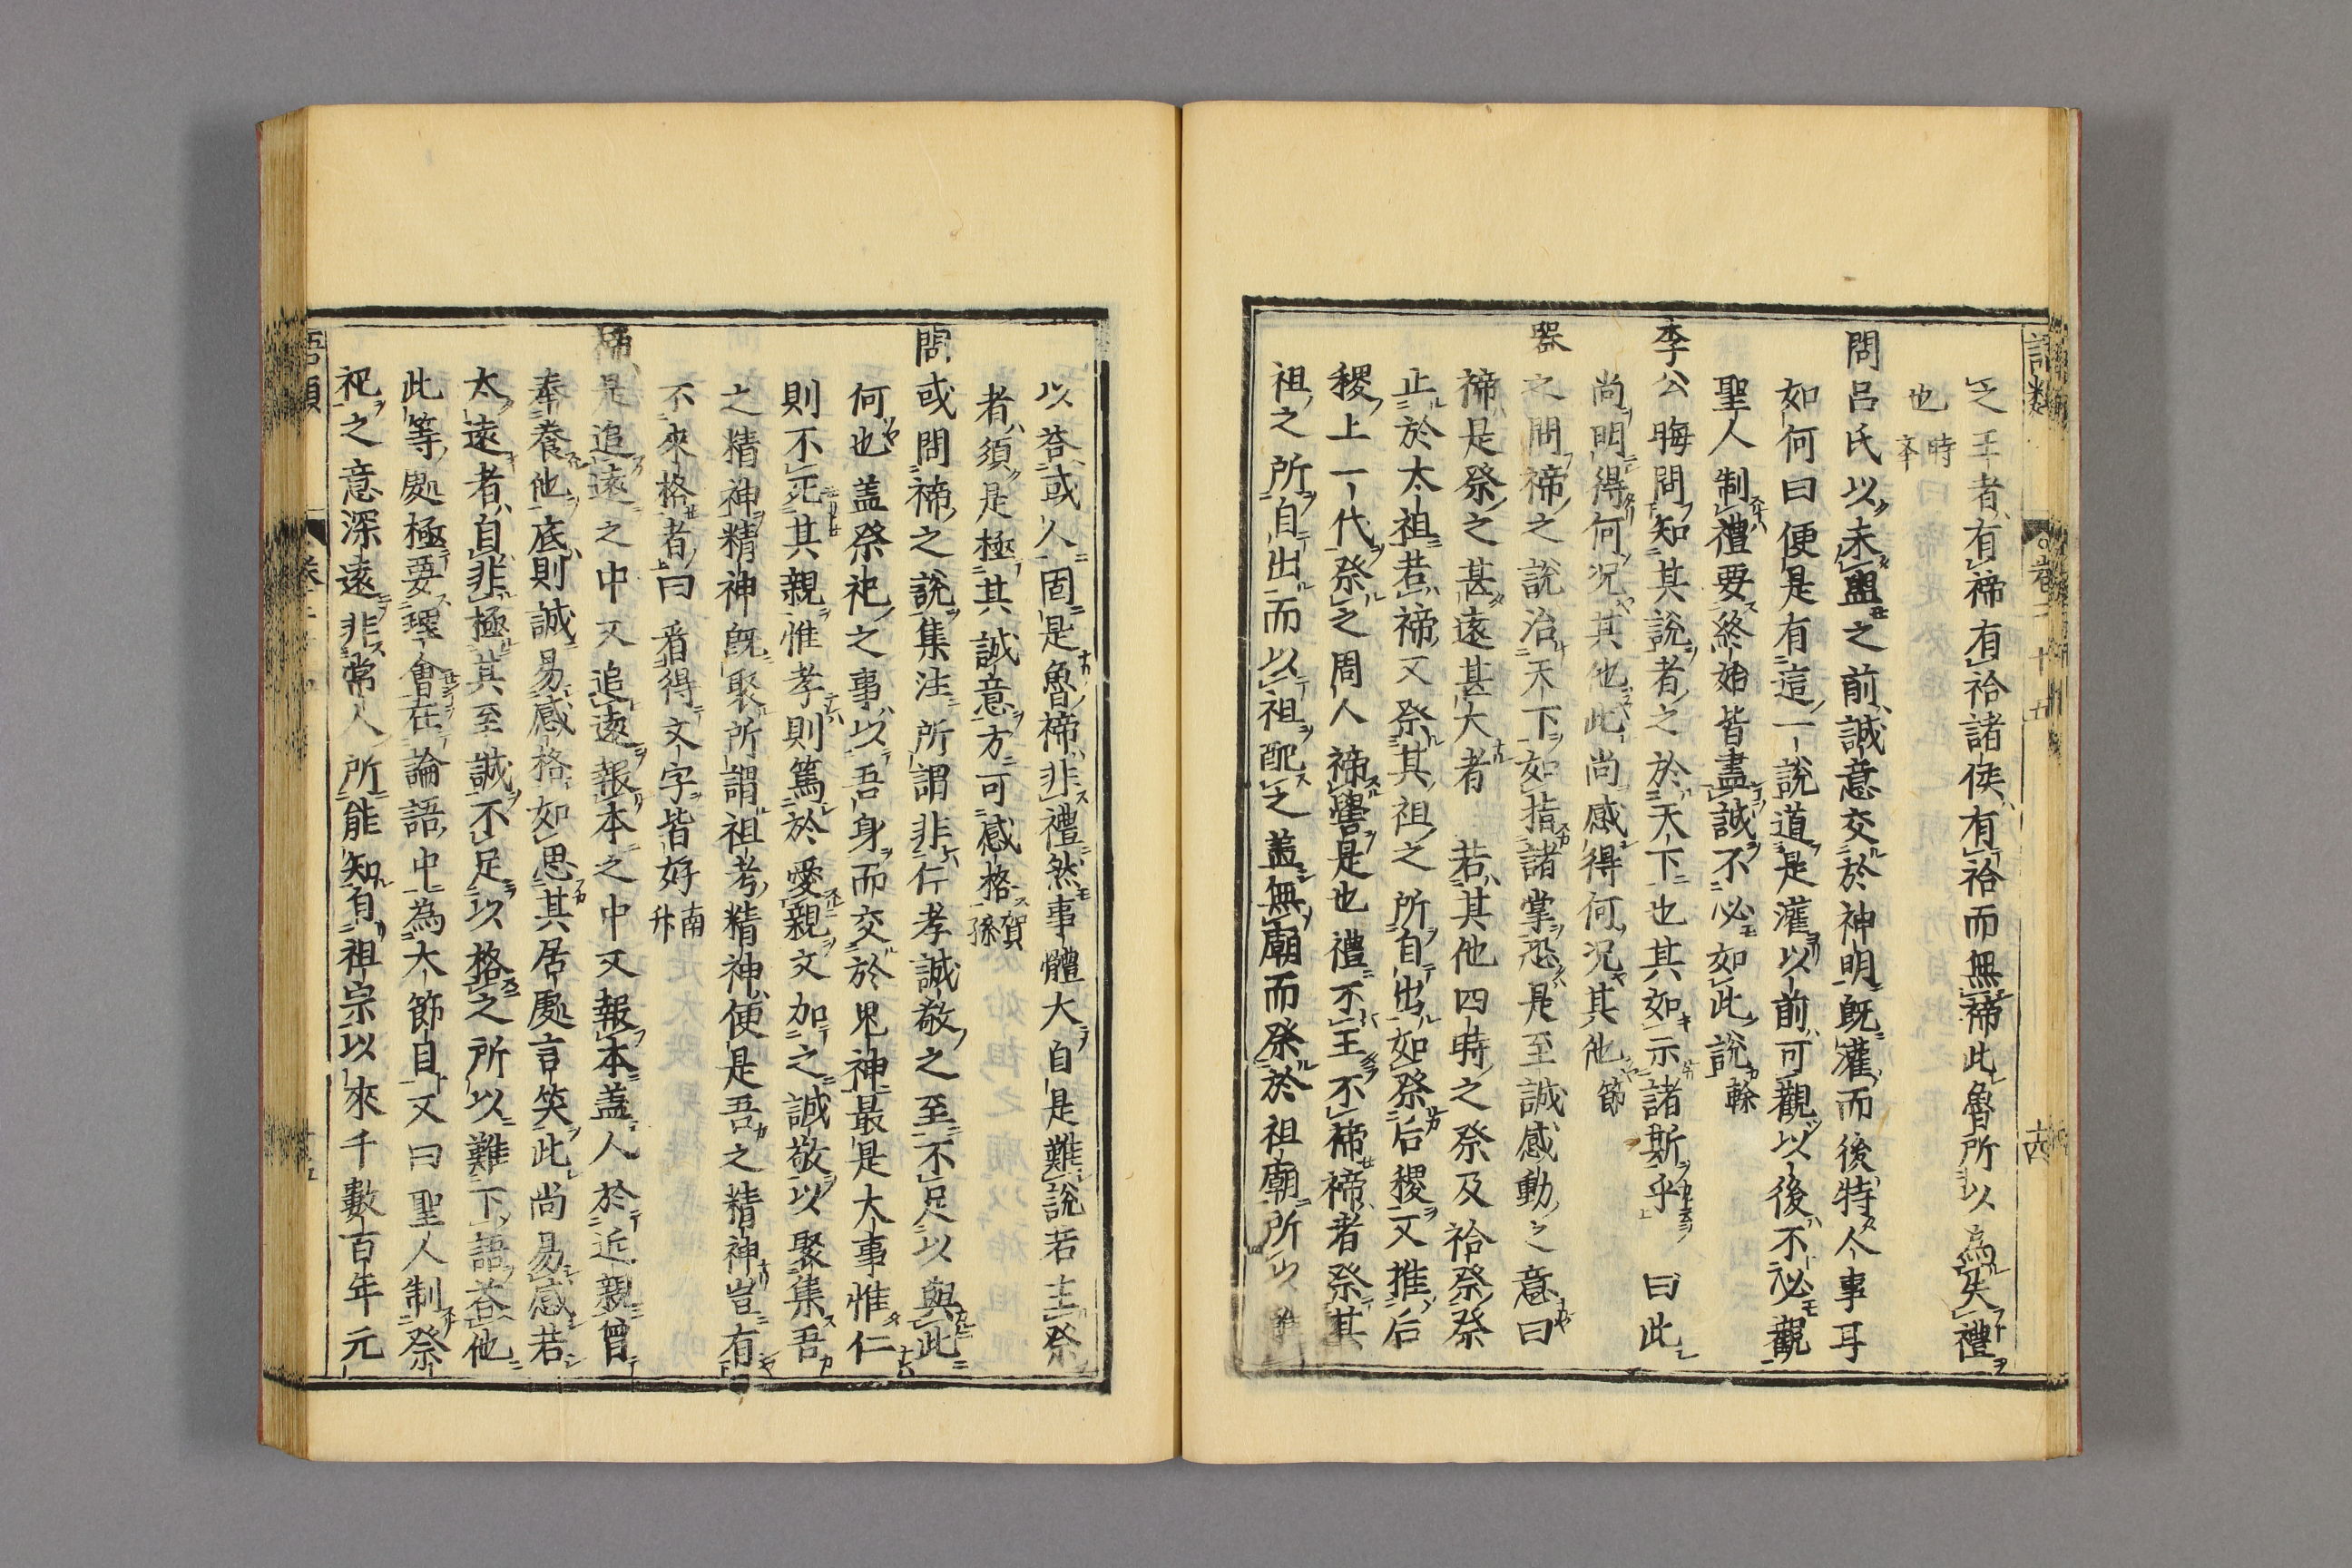 語類
卷二十五
之王者有禘有祫諸侯有祫而無禘此魯所以為失禮
也時本
問呂氏以未盥之前誠意交於神明既灌而後特人事耳
如何曰便是有這一說道是灌以前可觀以後不必觀
聖人制禮要終始皆盡誠不必如此說榦
李公晦問知其說者之於天下也其如示諸斯乎曰此
尚明得何况其他此尚感得何况其他節
器之問禘之說治天下如指諸掌恐是至誠感動之意曰
禘是祭之甚遠甚大者若其他四時之祭及祫祭祭
止於太祖若禘又祭其祖之所自出如祭后稷又推后
稷上一代祭之周人禘嚳是也禮不王不禘禘者祭其
祖之所自出而以祖配之蓋無廟而祭於祖廟所以
以荅或人固是魯禘非禮然事體大自是難說若主祭
者須是極其誠意方可感格賀孫
問或問禘之說集注所謂非仁孝誠敬之至不足以與此
何也蓋祭祀之事以吾身而交於鬼神最是大事惟仁
則不死其親惟孝則篤於愛親又加之誠敬以聚集吾
之精神精神既聚所謂祖考精神便是吾之精神豈有
不來格者曰看得文字皆好南升
禘是追遠之中又追遠報本之中又報本蓋人於近親曾
奉養他底則誠易感格如思其居處言笑此尚易感若
太遠者自非極其至誠不足以格之所以難下語荅他
此等處極要理會在論語中為大節自又曰聖人制祭
祀之意深遠非常人所能知自祖宗以來千數百年元
語類